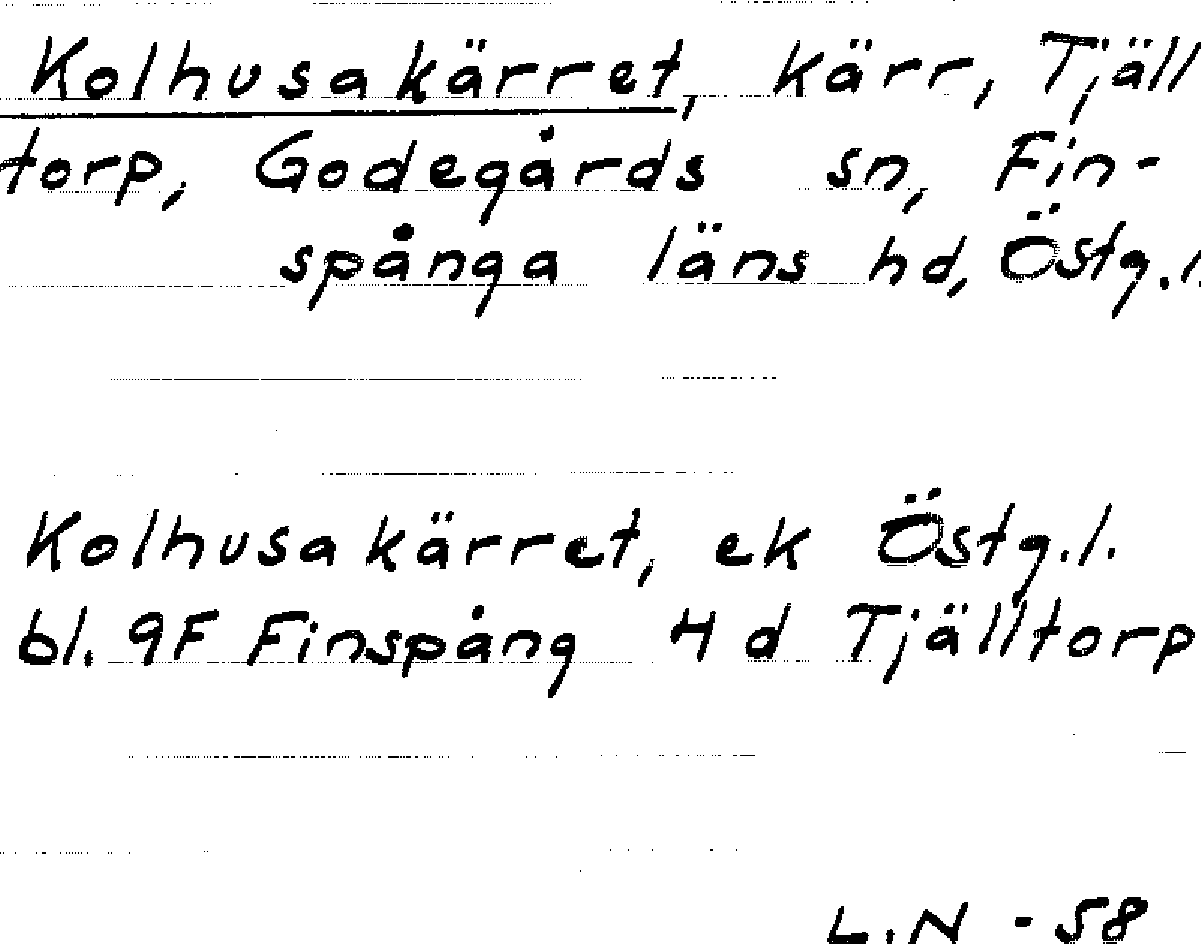 Kolhusakärret, kärr, Tjäll
torp, Godegårds sn, Fin-
spånga läns hd, Östg.l.
Kolhusakärret, ek Östg.l.
bl. 9F Finspång 4d Tjälltorp
L.N -58